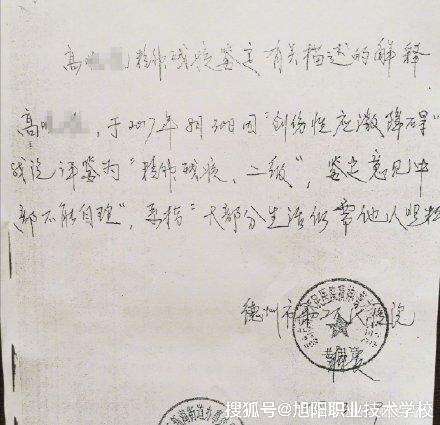 高 精神残疾鉴定有关描述的解释
高 ,于2017年8月30日因“创伤性应激障碍”
残况评鉴为“精神残疾,二级”,鉴定意见中
部不能自理”,系指“大部分生活仍需他人照料
德州市第二人民医院
搜狐号@旭阳职业技术学校